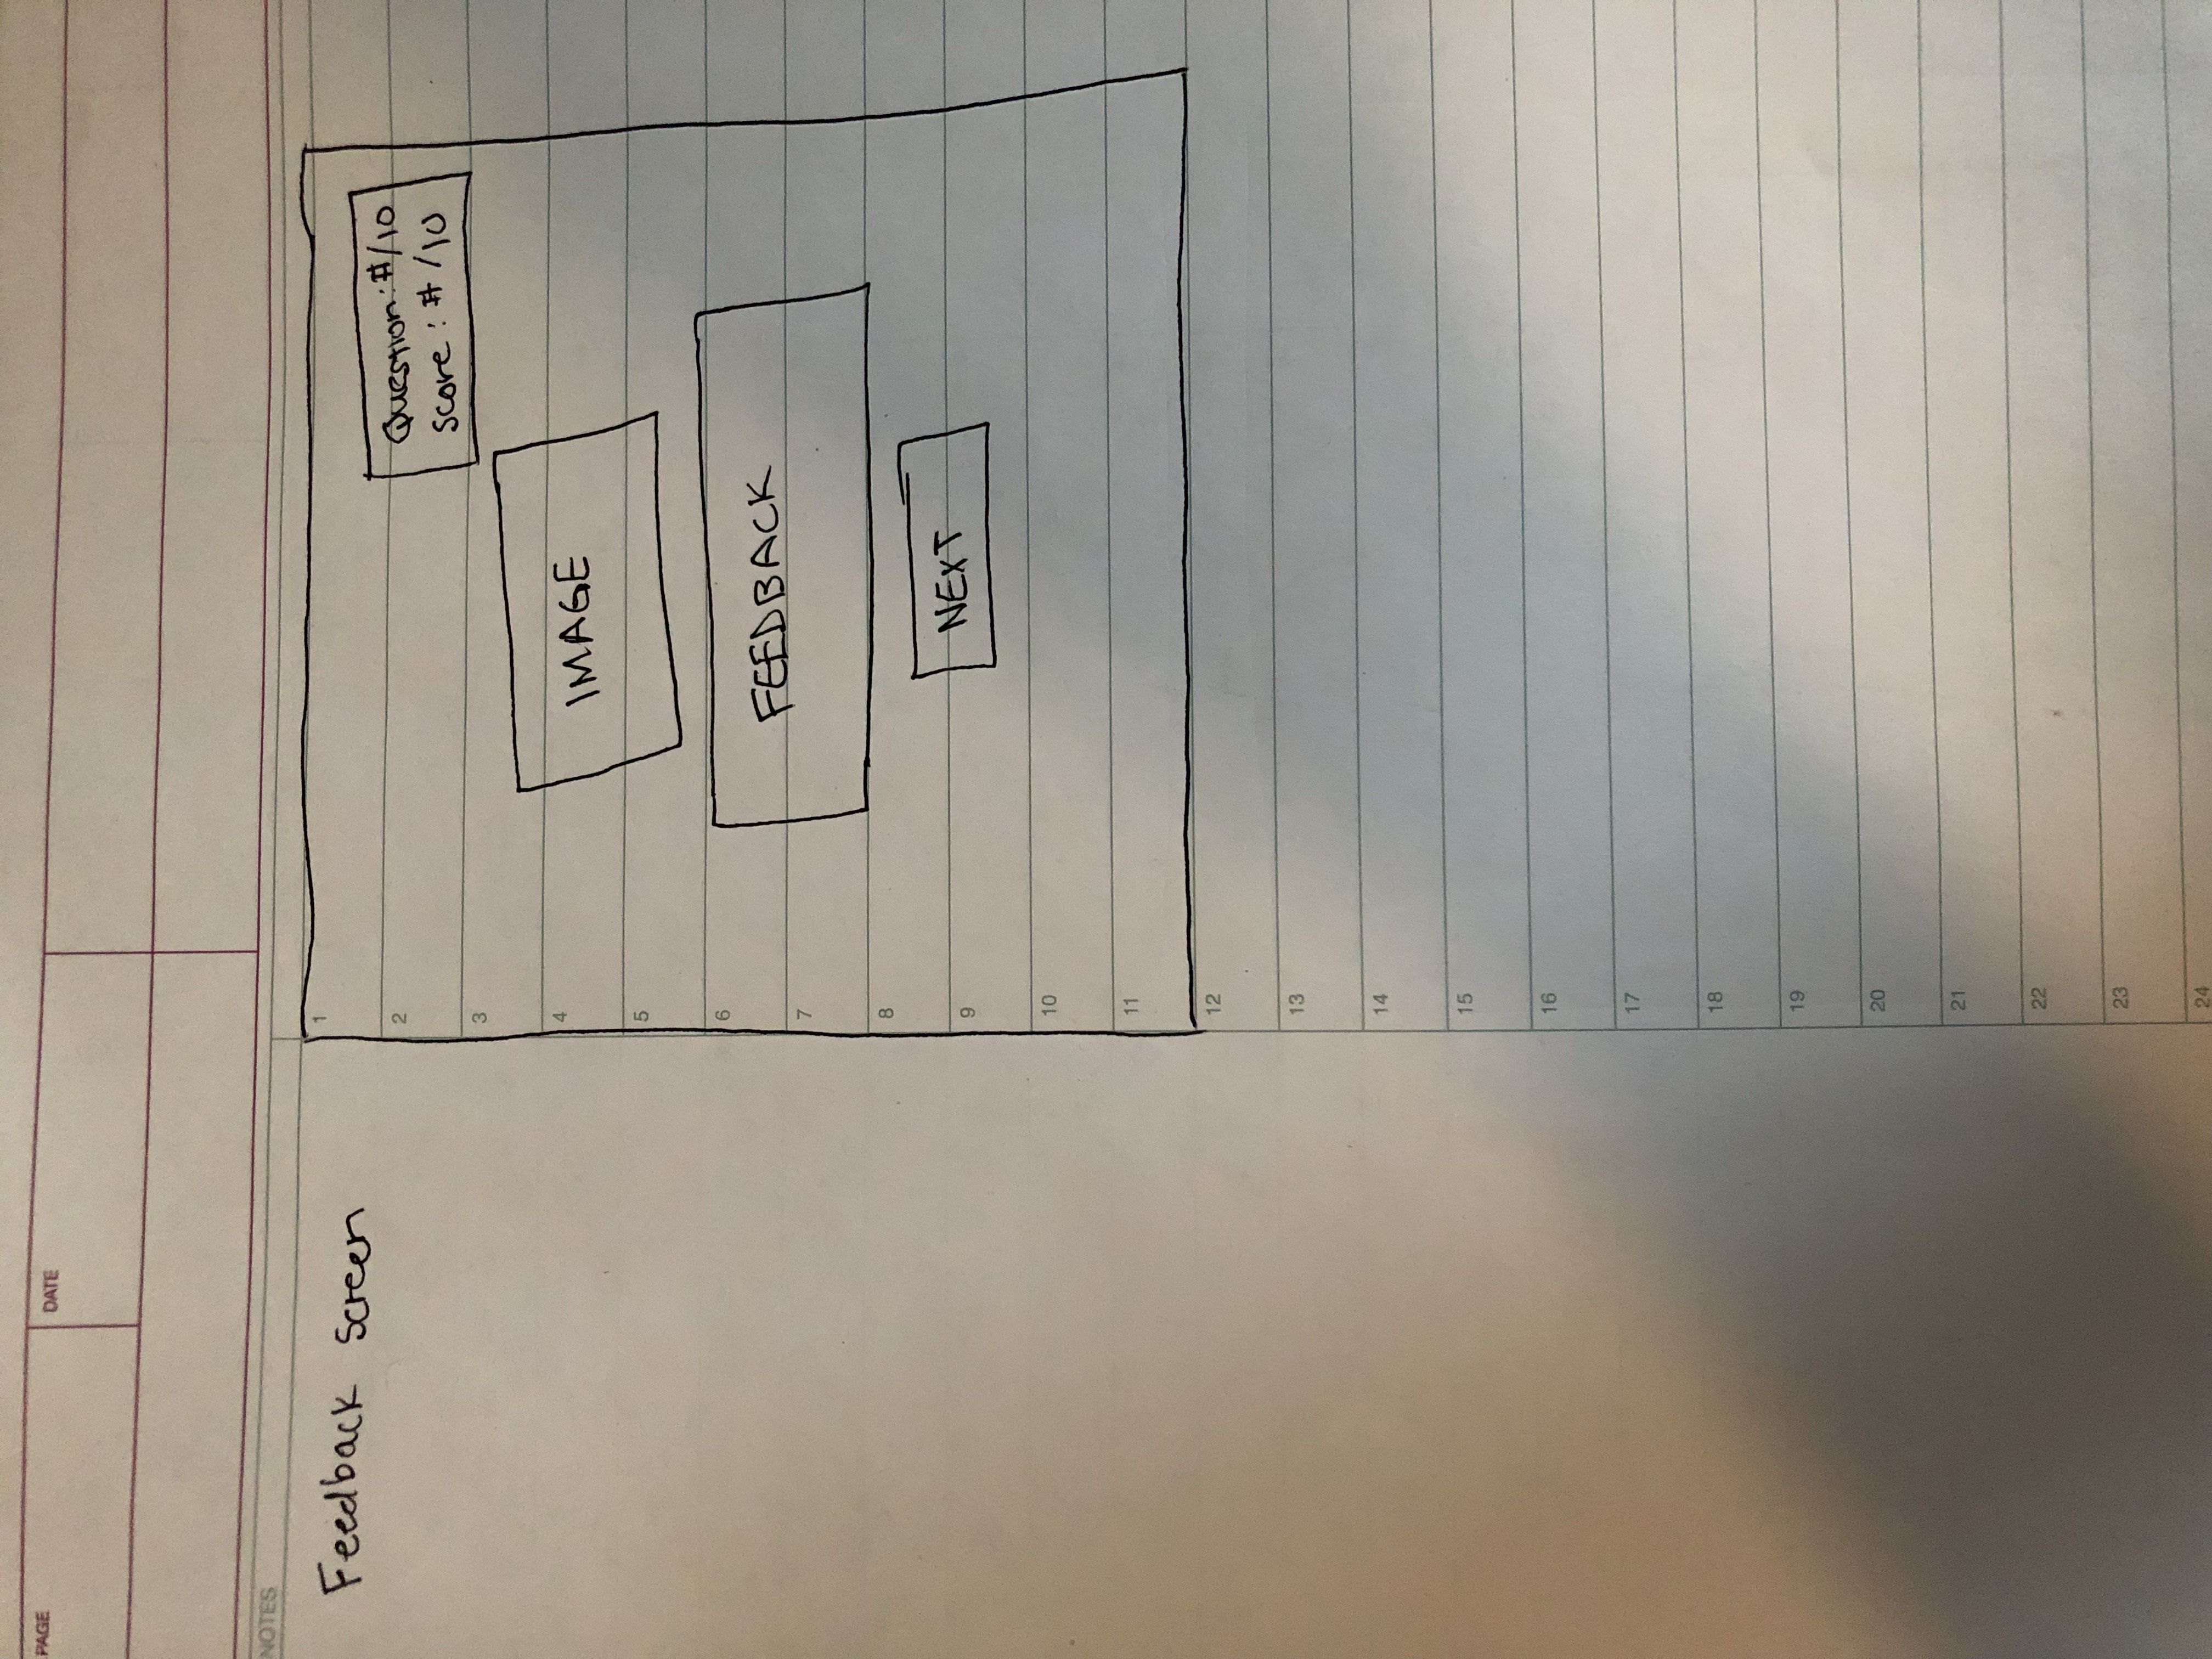 PAGE
DATE
NOTES
Feedback Screen
1
Question: #/10
2
Score: #/10
3
4
IMAGE
5
6
FEEDBACK
7
8
NEXT
9
10
11
12
13
14
15
16
17
18
19
20
21
22
23
24